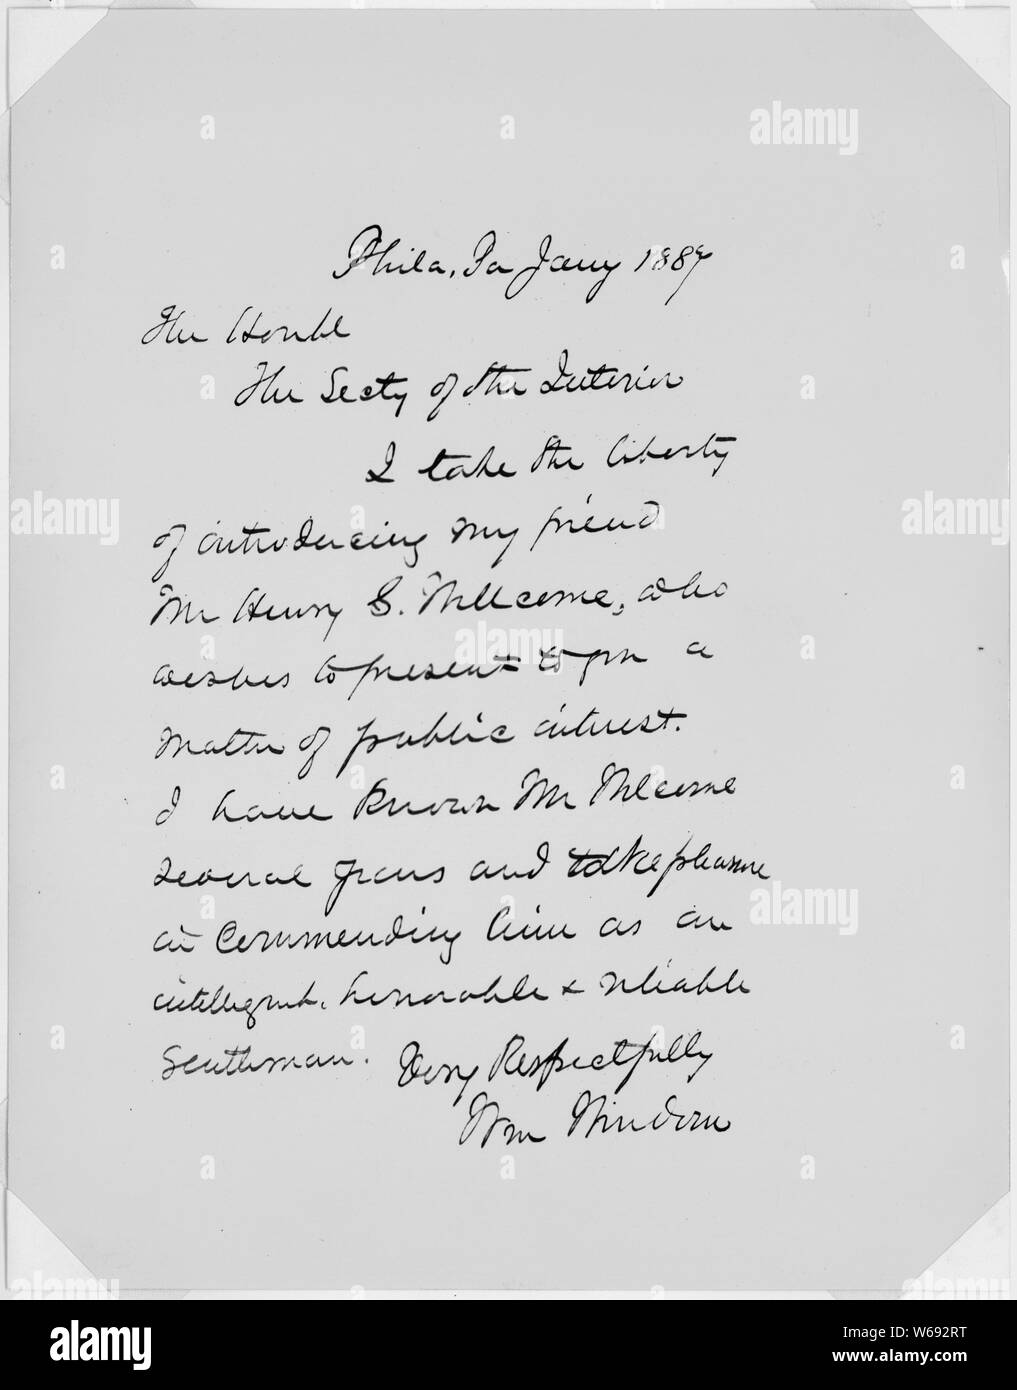 Phila, Pa Jany 1887
The Honble
The Secty of the Interior
I take the liberty
of introducing my friend
Mr Henry S. Wellcome, who
wishes to present to you a
matter of public interest.
I have known Mr Wellcome
several years and take pleasure
in commending him as an
intelligent, honorable & reliable
gentleman. Very Respectfully
Wm Windom
alamy
a
alamy
Image ID: W692RT
www.alamy.com